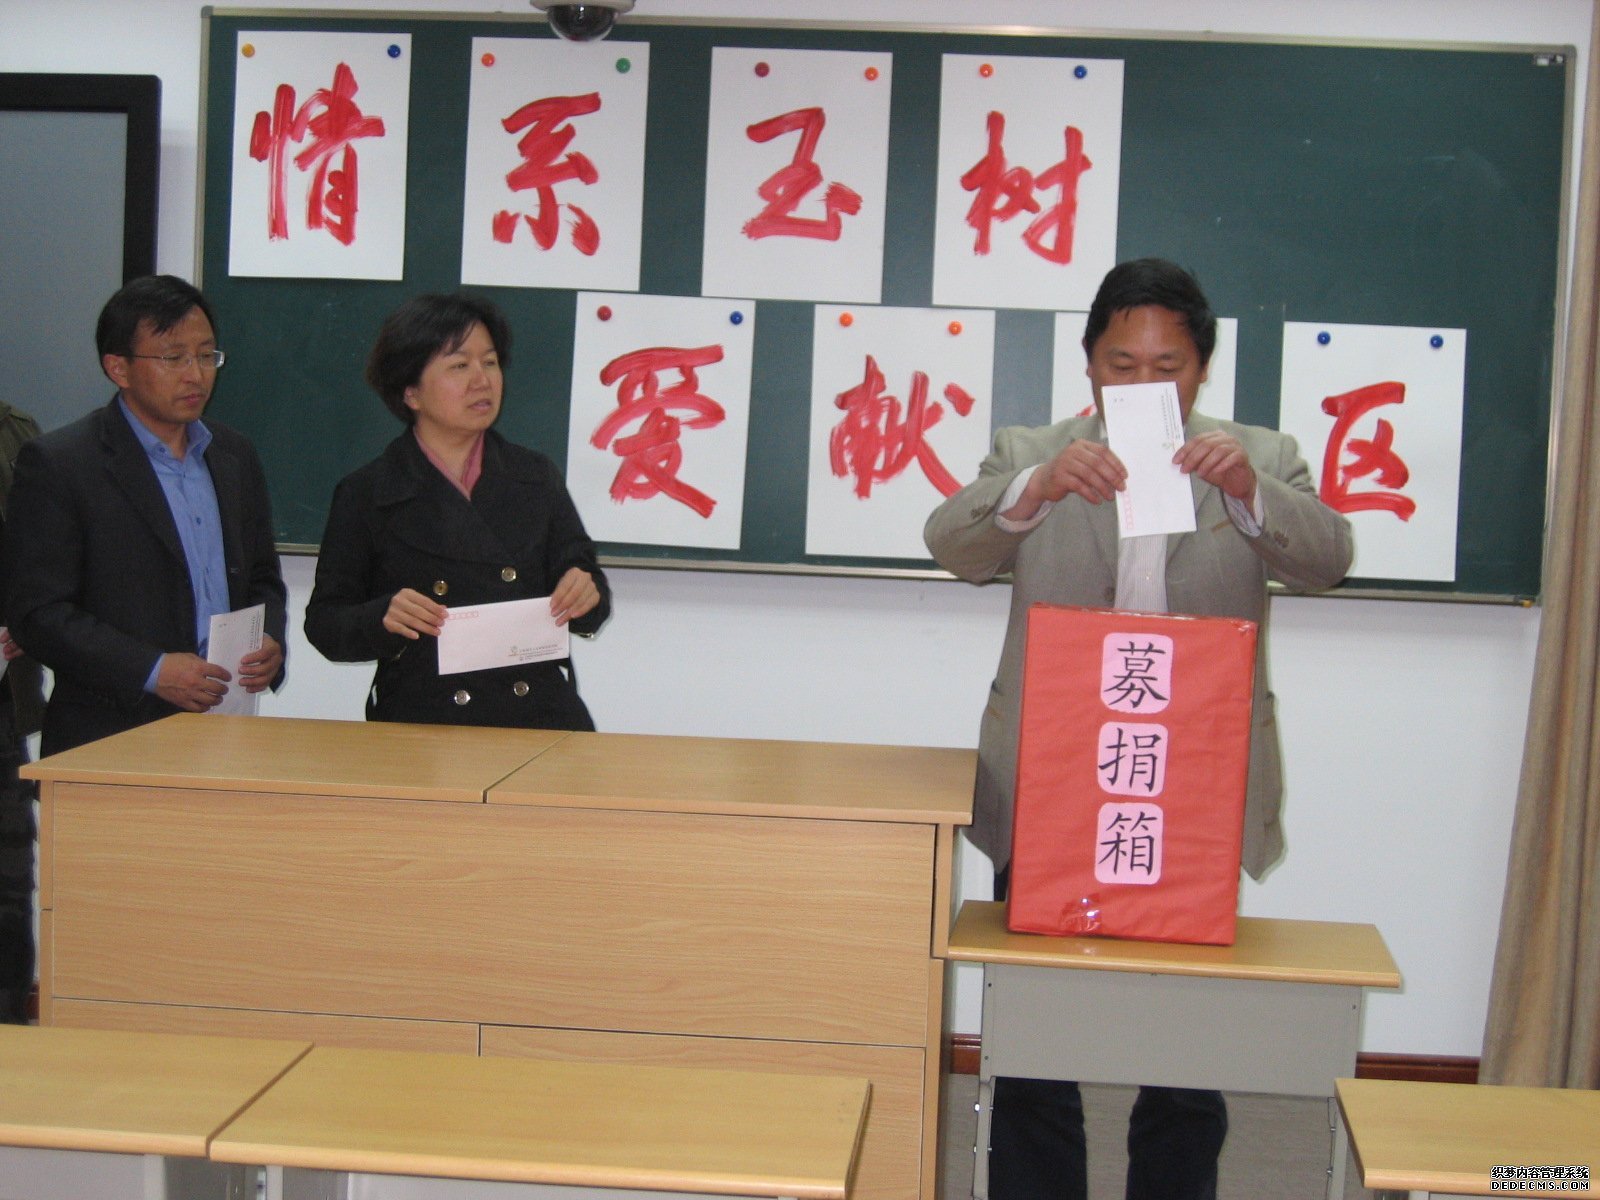 情系玉树
爱献 区
募捐箱
织梦内容管理系统
DEDECMS.COM